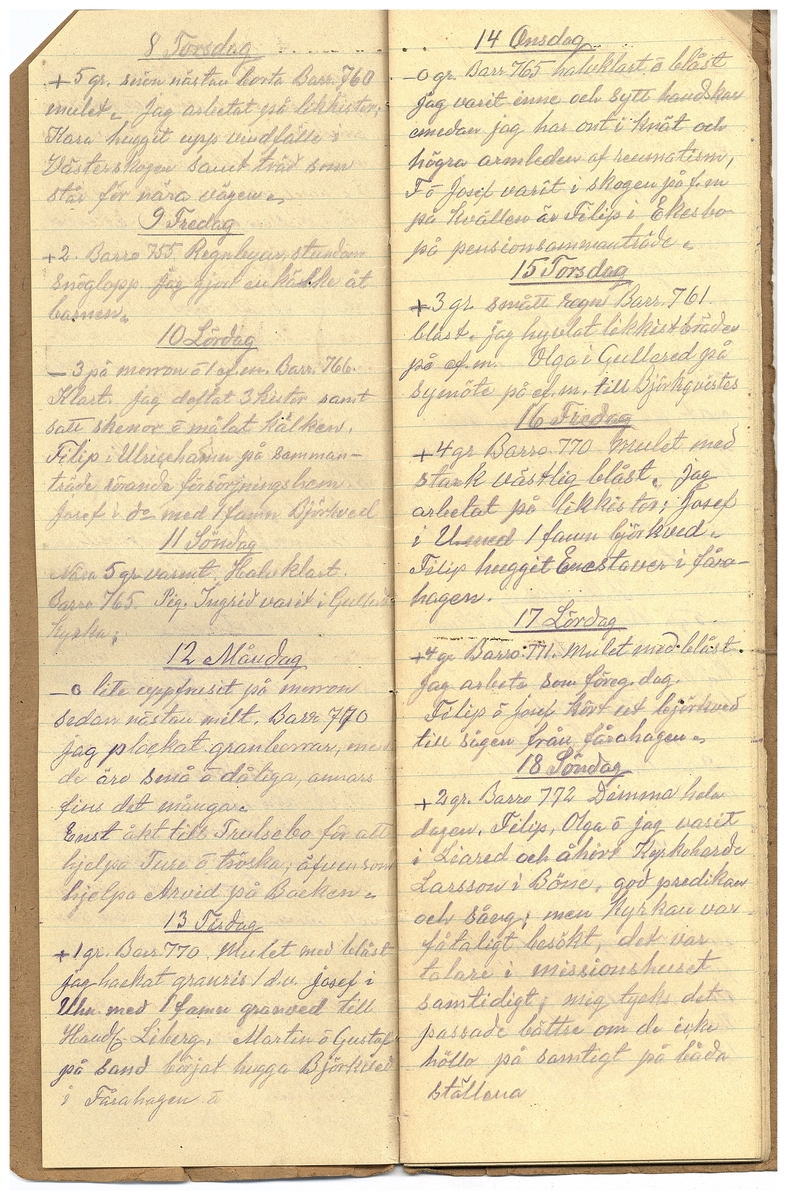 8 Torsdag
+5 gr. snön nästan borta Barr. 760
mulet. Jag arbetat på likkistor;
Kara hugget upp vindfälle i
Västerskogen samt träd som
står för nära vägen.
9 Fredag
+2. Barro 755 Regnbyar, stundom
snöglopp. jag gjort en kälke åt
barnen.
10 Lördag
–3 på morron ö 1 ef.m. Barr. 766.
Klart. jag doftat 3 kistor samt
satt skenor ö målat kälken.
Filip i Ulricehamn på samman-
träde rörande försörjningshem
Josef i do med 1 famn Björkved
11 Söndag
Nära 5 gr varmt. Halvklart.
Barro 765. Pig. Ingrid varit i Gullered
Kyrka;
12 Måndag
–0 lite uppfruset på morron
sedan nästan milt. Barr 770
jag plockat granborrar, men
de äro små ö dåliga, annars
fins det många.
Enst åkt till Trulsebo för att
hjelpa Ture ö tröska; äfven som
hjelpa Arvid på Backen.
13 Tisdag
+1 gr. Barr. 770. Mulet med blåst
jag hackat granris / d.v. Josef i
Uhn. med 1 famn granved till
Handl. Liberg. Martin ö Gustaf
på sand börjat hugga Björkved
i Fårahagen ö
14 Onsdag
–0 gr. Barr 765 halvklart ö blåst
jag varit inne och sytt handskar
emedan jag har ont i knät och
högra armleden af reumatism,
F ö Josef varit i skogen på f.m
på kvällen är Filip i Ekesbo
på pensionsammanträde.
15 Torsdag
+3 gr. smått regn Barr. 761.
blåst. jag hyvlat likkistbräder
på ef.m. Olga i Gullered på
symöte på ef.m. till Björkqvistes
16 Fredag
+4 gr Barro. 770 Mulet med
stark västlig blåst. jag
arbetat på likkistor; Josef
i U. med 1 famn björkved.
Filip hugget Enestaver i fåra-
hagen.
17 Lördag
+4 gr Barro. 771. Mulet med blåst.
jag arbete som föreg. dag.
Filip ö Josef kört ut björkved
till vägen från fårahagen.
18 Söndag
+2 gr. Barro 772 Dimma hela
dagen. Filip, Olga ö jag varit
i Liared och åhört Kyrkoherde
Larsson i Böne, god predikan
och sång; men Kyrkan var
fåtaligt besökt, det var
talare i missionshuset
samtidigt; mig tycks det
passade bättre om de icke
hölle på samtigt på båda
ställena